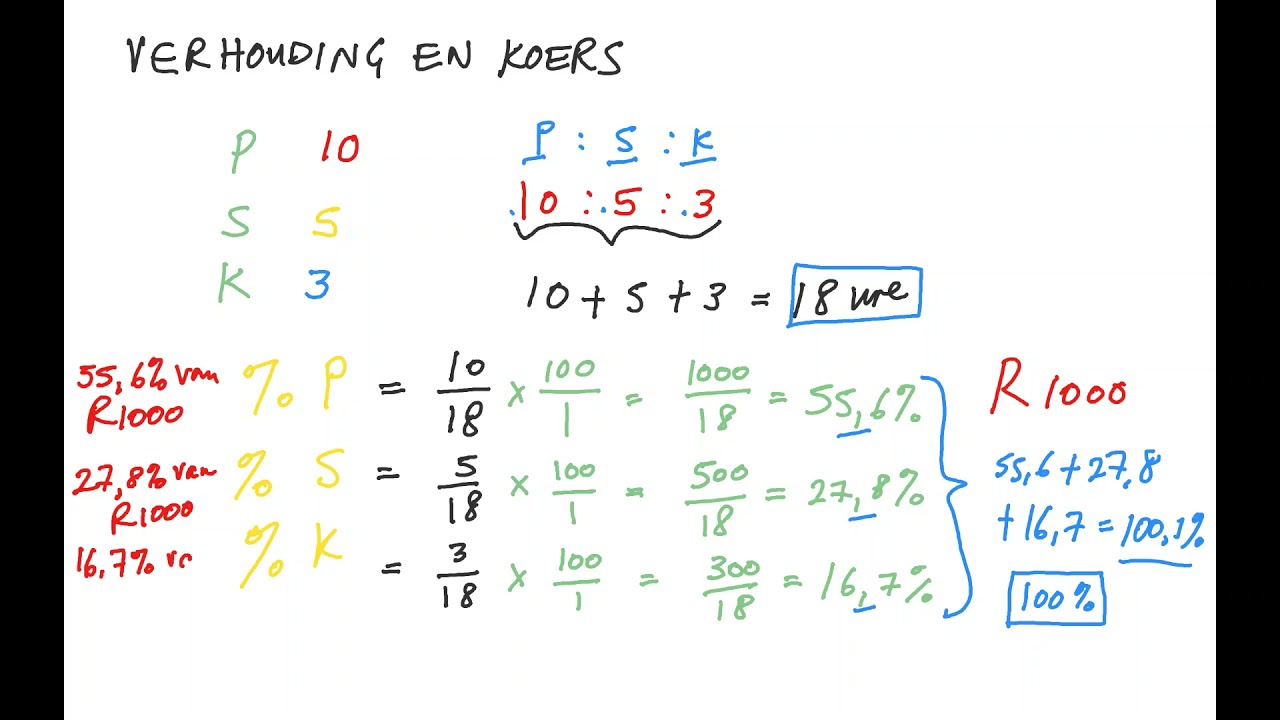 VERHOUDING EN KOERS
P 10
S 5
K 3
P : S : K
10 : 5 : 3
10 + 5 + 3 = 18 ure
55,6% van
R1000
% P = 10/18 × 100/1 = 1000/18 = 55,6%
27,8% van
R1000
% S = 5/18 × 100/1 = 500/18 = 27,8%
16,7% va
% K = 3/18 × 100/1 = 300/18 = 16,7%
R 1000
55,6 + 27,8
+ 16,7 = 100,1%
100%